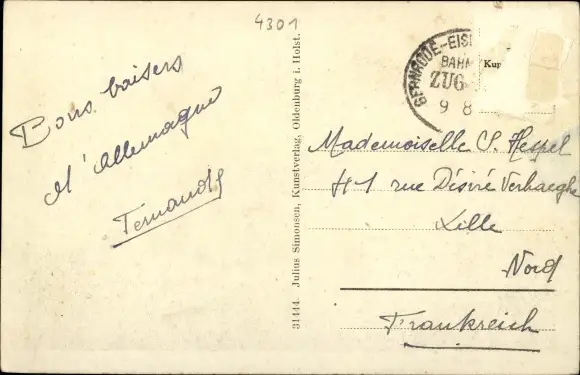 4301
Bons baisers
d'Allemagne
Fernande
31444. Julius Simonsen, Kunstverlag, Oldenburg i. Holst.
GERNRODE-EIS
BAHN
ZUG
9 8
Kup
Mademoiselle S. Hespel
41 rue Désiré Verhaeghe
Lille
Nord
Frankreich